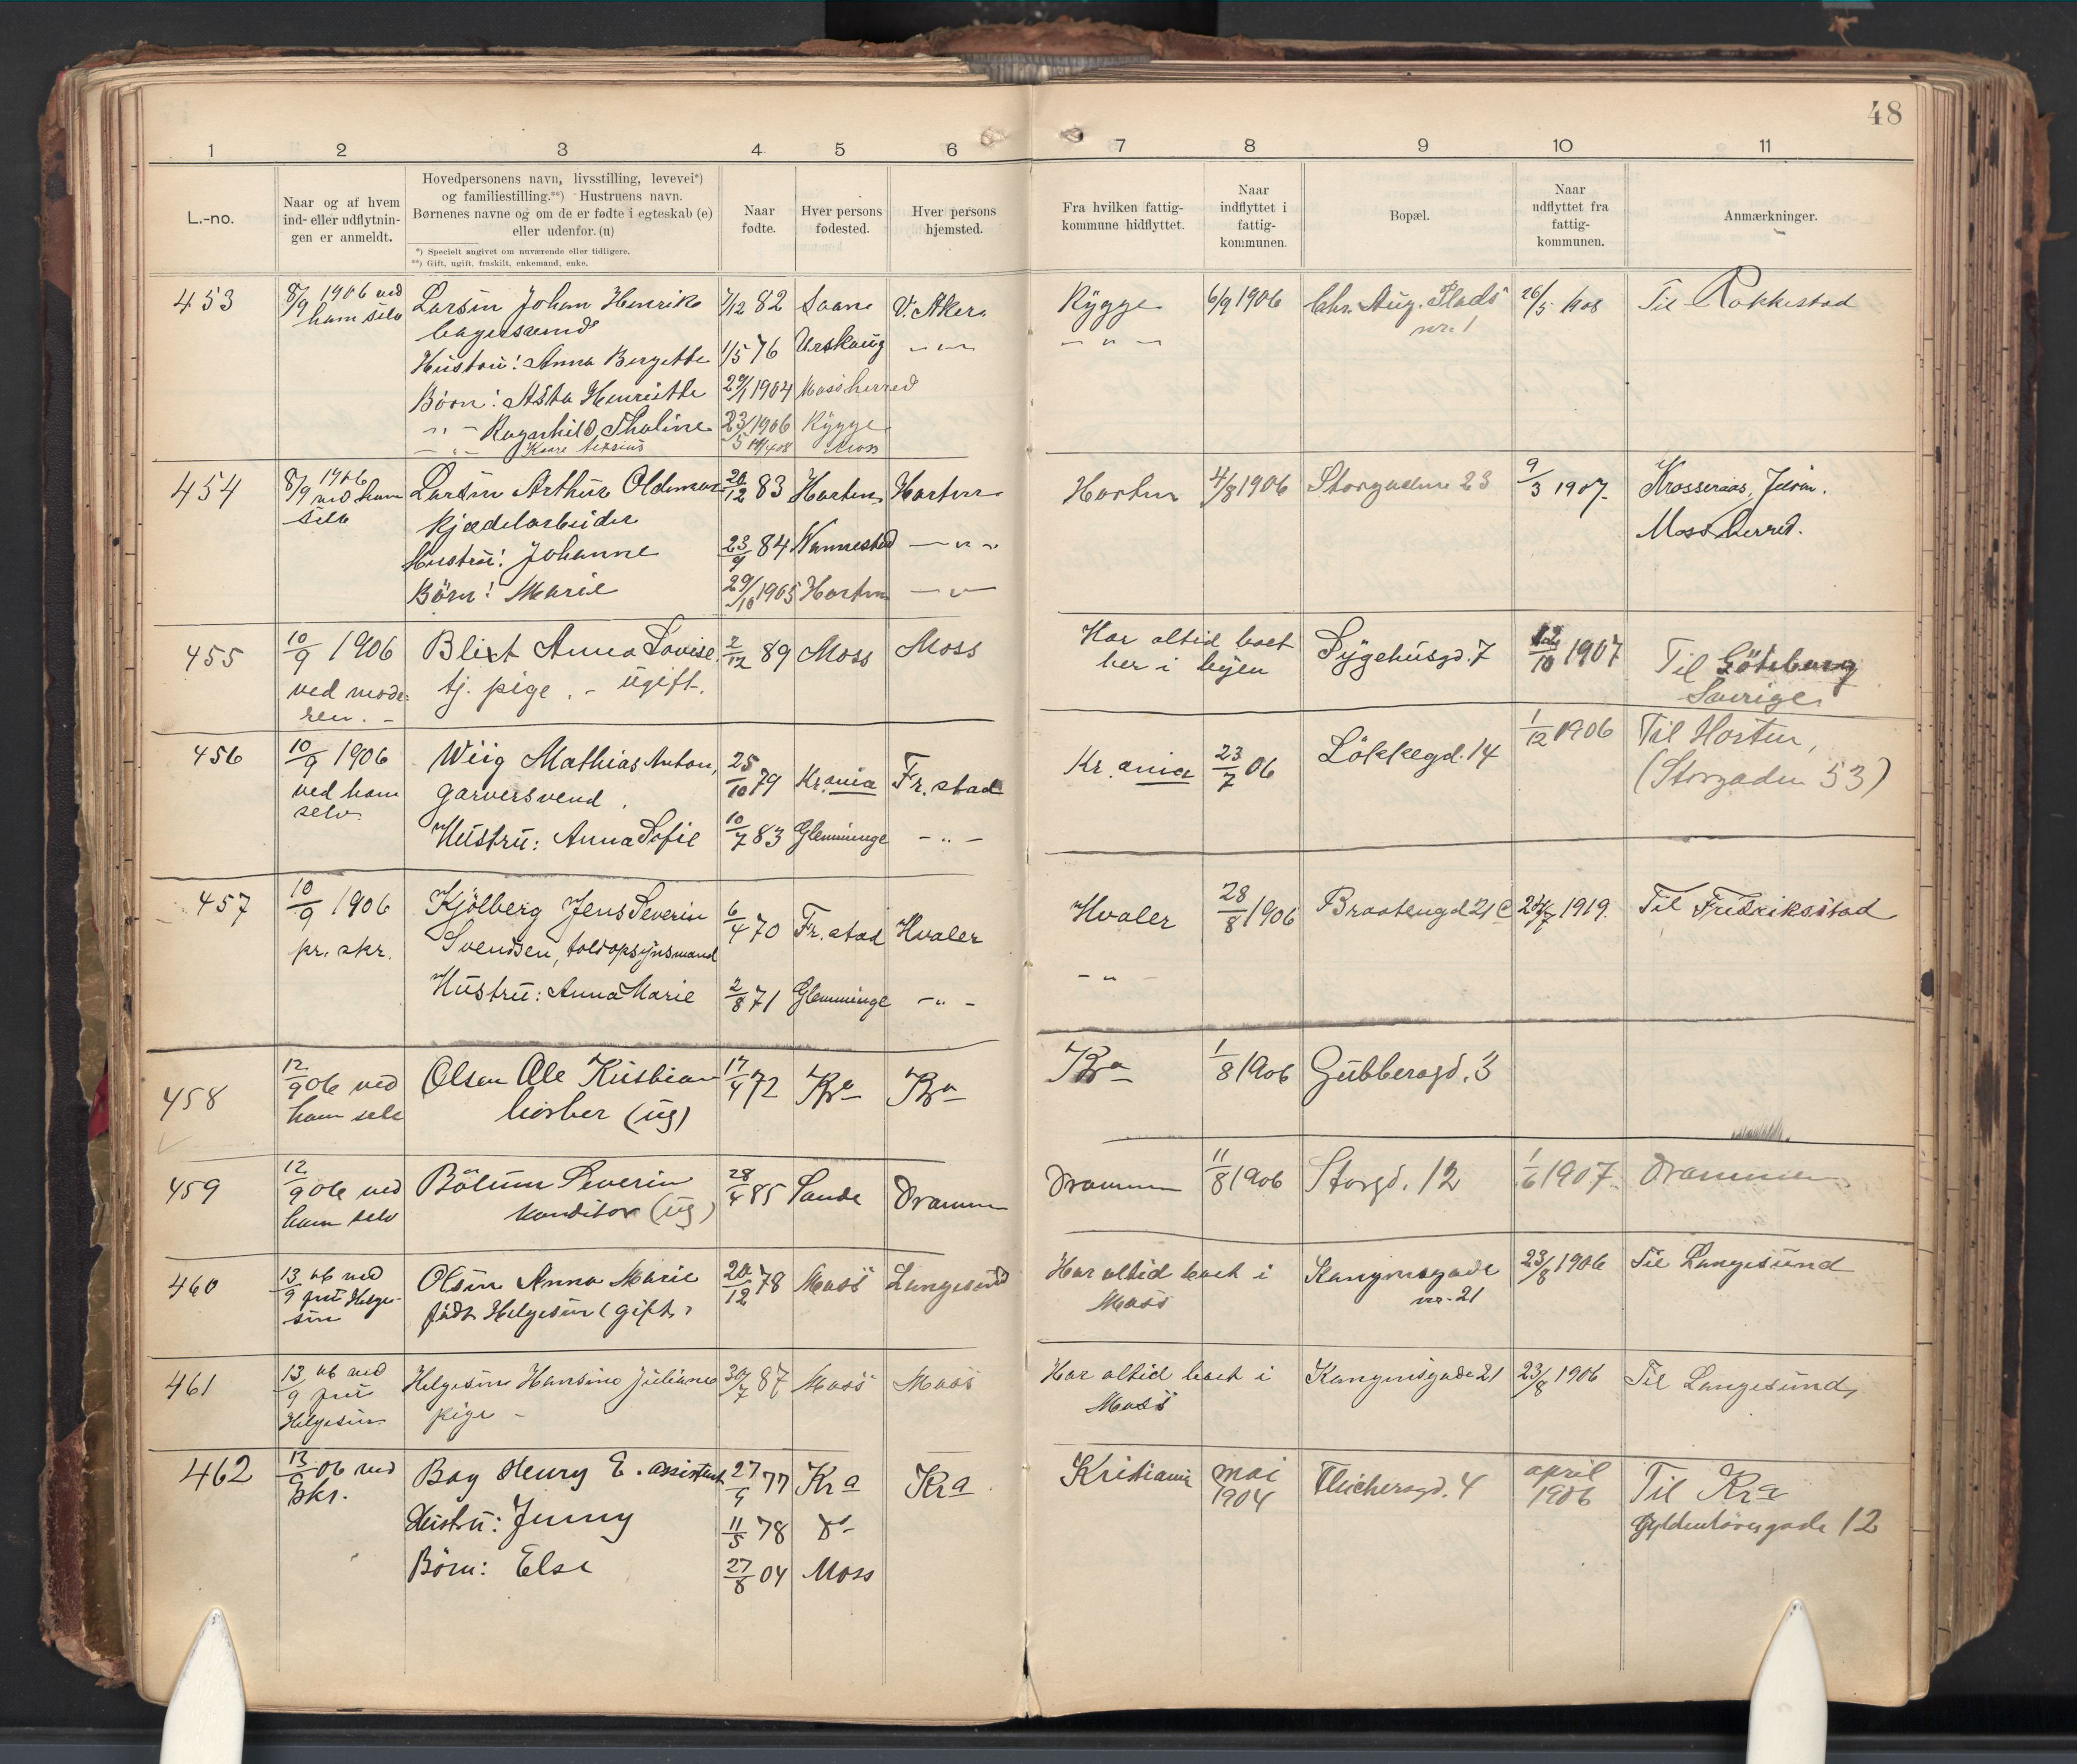 48
1 2 3 4 5 6 7 8 9 10 11
L.-no.
Naar og af hvem
ind- eller udflytnin-
gen er anmeldt.
Hovedpersonens navn, livsstilling, levevei*)
og familiestilling.**) Hustruens navn.
Børnenes navne og om de er fødte i egteskab (e)
eller udenfor. (u)
*) Specielt angivet om nuværende eller tidligere.
**) Gift, ugift, fraskilt, enkemand, enke.
Naar
fødte.
Hver persons
fødested.
Hver persons
hjemsted.
Fra hvilken fattig-
kommune hidflyttet.
Naar
indflyttet i
fattig-
kommunen.
Bopæl.
Naar
udflyttet fra
fattig-
kommunen.
Anmærkninger.
453 8/9 1906 ved Larsen Johan Henrik 7/12 82 V. Aker Rygge 6/9 1906 Chr. Aug. Plads 26/5 1908 Til Rakkestad
ham selv bagersvend nr. 1
Hustru: Anna Bergette 1/5 76 Urskoug — " — — " —
Børn: Asta Henriette 1904 Moss herred
— " — Ragnhild Thaline 23/5 1906 Rygge
— " — Kaare 08 Moss
454 8/9 1906 Larsen Arthur Oldemar 20/12 83 Horten Horten Horten 4/8 1906 Storgaden 23 9/3 1907. Krosseraas, Jeløen.
ved ham selv Kjædelarbeider Moss herred.
Hustru: Johanne 23/9 84 Nannestad — " —
Børn: Marie 29/10 1905 Horten — " —
455 10/9 1906 Blixt Anna Lovise 2/12 89 Moss Moss Har altid boet Sygehusgd. 7 12/10 1907 Til Göteborg
ved mode- tj. pige. - ugift. her i byen Sverige
ren. -
456 10/9 1906 Wiig Mathias Anton, 25/10 79 Kr.ania Fr.stad Kr.ania 23/7 06 Løkkegd. 14 1/12 1906 Til Horten,
ved ham garversvend. (Storgaden 53)
selv.
Hustru: Anna Sofie 10/7 83 Glemminge - " -
457 10/9 1906 Kjølberg Jens Severin 6/4 70 Fr.stad Hvaler Hvaler 28/8 1906 Braatengd 21 c 1919. Til Fredriksstad
pr. skr. Svendsen, toldopsynsmand
Hustru: Anna Marie 2/8 71 Glemminge - " - - " -
458 12/9 06 ved Olsen Ole Kristian 17/4 72 Kra Kra Kra 1/8 1906 Gubberogd. 3
ham selv barber (ug)
459 12/9 06 ved Bølum Severin 28/4 85 Sande Drammen Drammen 11/8 1906 Storgd. 12 1/6 1907. Drammen
ham selv konditor (ug)
460 13/9 06 ved Olsen Anna Marie 20/12 78 Moss Langesund Har altid boet i Kongensgade 23/8 1906 Til Langesund
frk Helge- født Helgesen (gift) Moss nr. 21
sen
461 13/9 06 ved Helgesen Hansine Juliane 30/7 87 Moss Moss Har altid boet i Kongensgade 21 23/8 1906 Til Langesund,
frk pige - Moss
Helgesen
462 13/9 06 ved Bay Henry E. assistent 27/4 77 Kra Kra Kristiania mai Fleichersgd. 4 april Til Kra
skr. 1904 1906 Gyldenløvesgade 12
Hustru: Jenny 11/5 78 do
Børn: Else 27/8 04 Moss